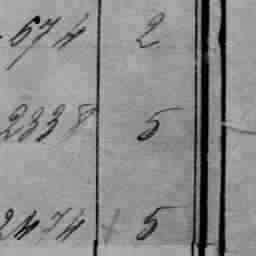 674 2
2338 5
2474 5